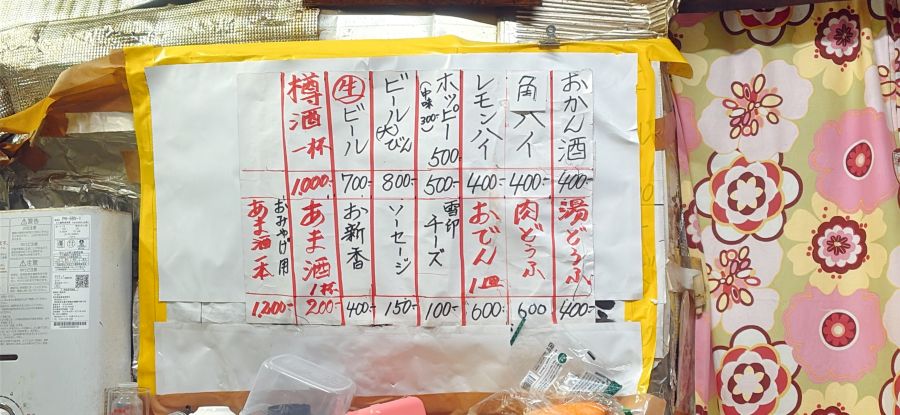 おかん酒 400-
角ハイ 400-
レモンハイ 400-
ホッピー 500 (中味300-) 500-
ビール大びん 800-
生ビール 700-
樽酒一杯 1,000-
湯どうふ 400-
肉どうふ 600
おでん1皿 600-
雪印チーズ 100-
ソーセージ 150-
お新香 400-
あま酒1杯 200-
おみやげ用あま酒一本 1,200-